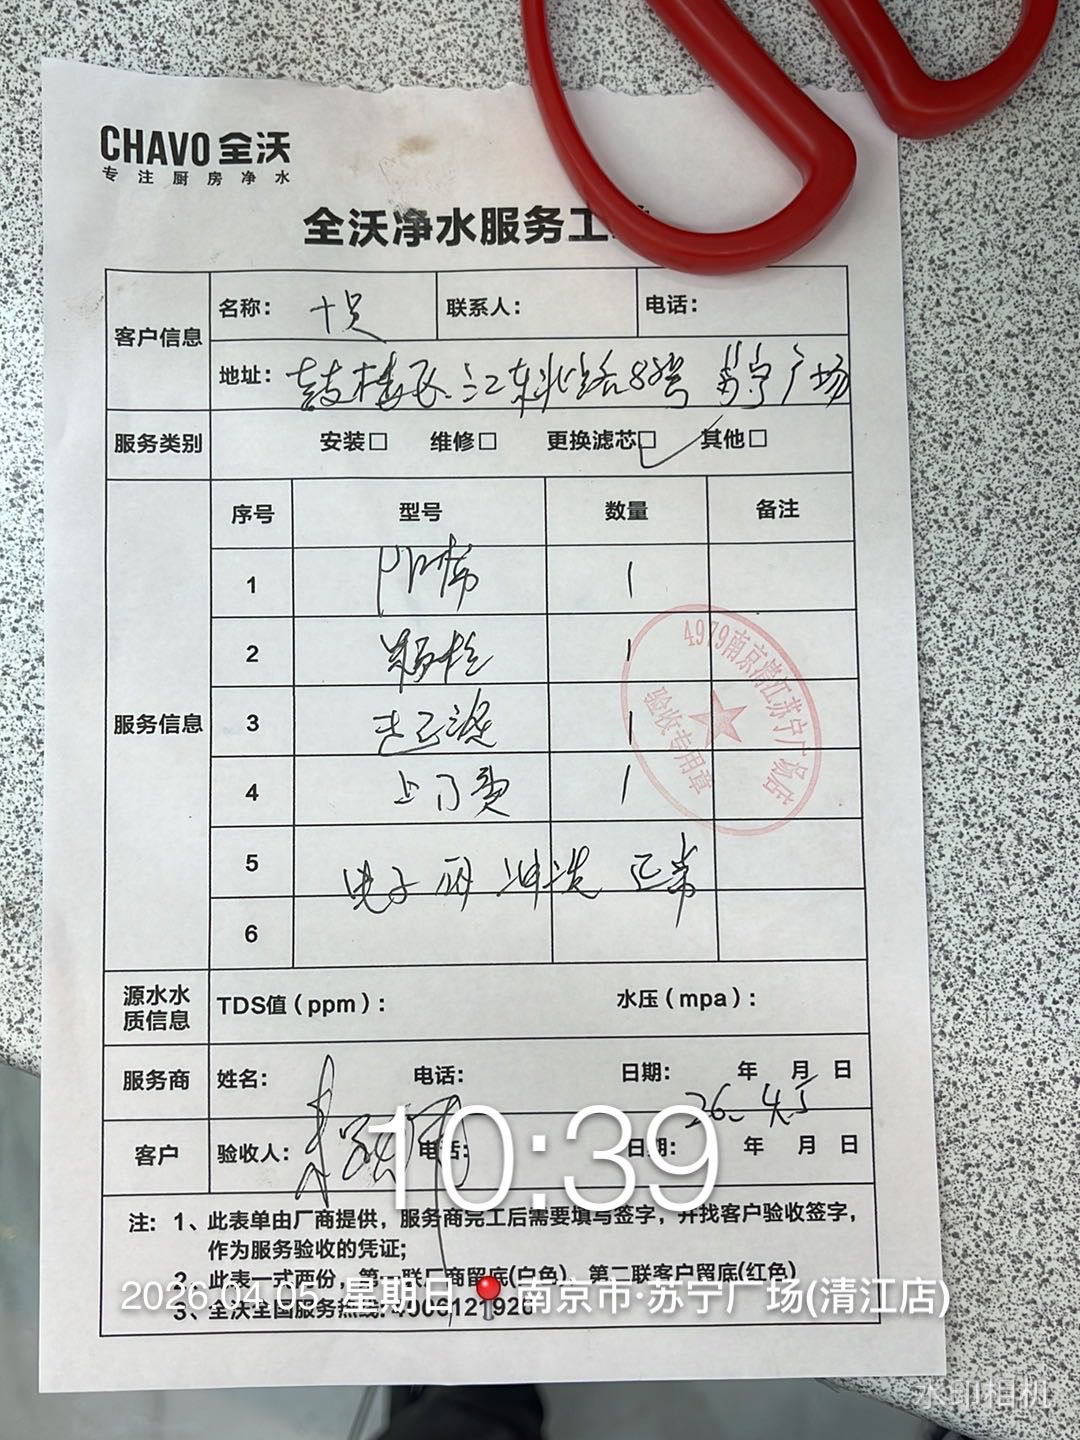 CHAVO 全沃
专注厨房净水
全沃净水服务工
客户信息
名称：
联系人：
电话：
地址：鼓楼区江东北路88号 苏宁广场
服务类别
安装□ 维修□ 更换滤芯□ ✓ 其他□
服务信息
序号 型号 数量 备注
1 PP棉 1
2 颗粒 1
3 超滤 1
4 上门费 1
5 电子阀 冲洗 正常
6
4979南京清江苏宁广场店
验收专用章
源水水质信息
TDS值（ppm）：
水压（mpa）：
服务商
姓名：
电话：
日期： 年 月 日
26.4.5
客户
验收人：
电话：
日期： 年 月 日
10:39
注：1、此表单由厂商提供，服务商完工后需要填写签字，并找客户验收签字，
作为服务验收的凭证；
2、此表一式两份，第一联厂商留底(白色)，第二联客户留底(红色)
3、全沃全国服务热线：4006121926
2026.04.05 星期日 南京市·苏宁广场(清江店)
水印相机